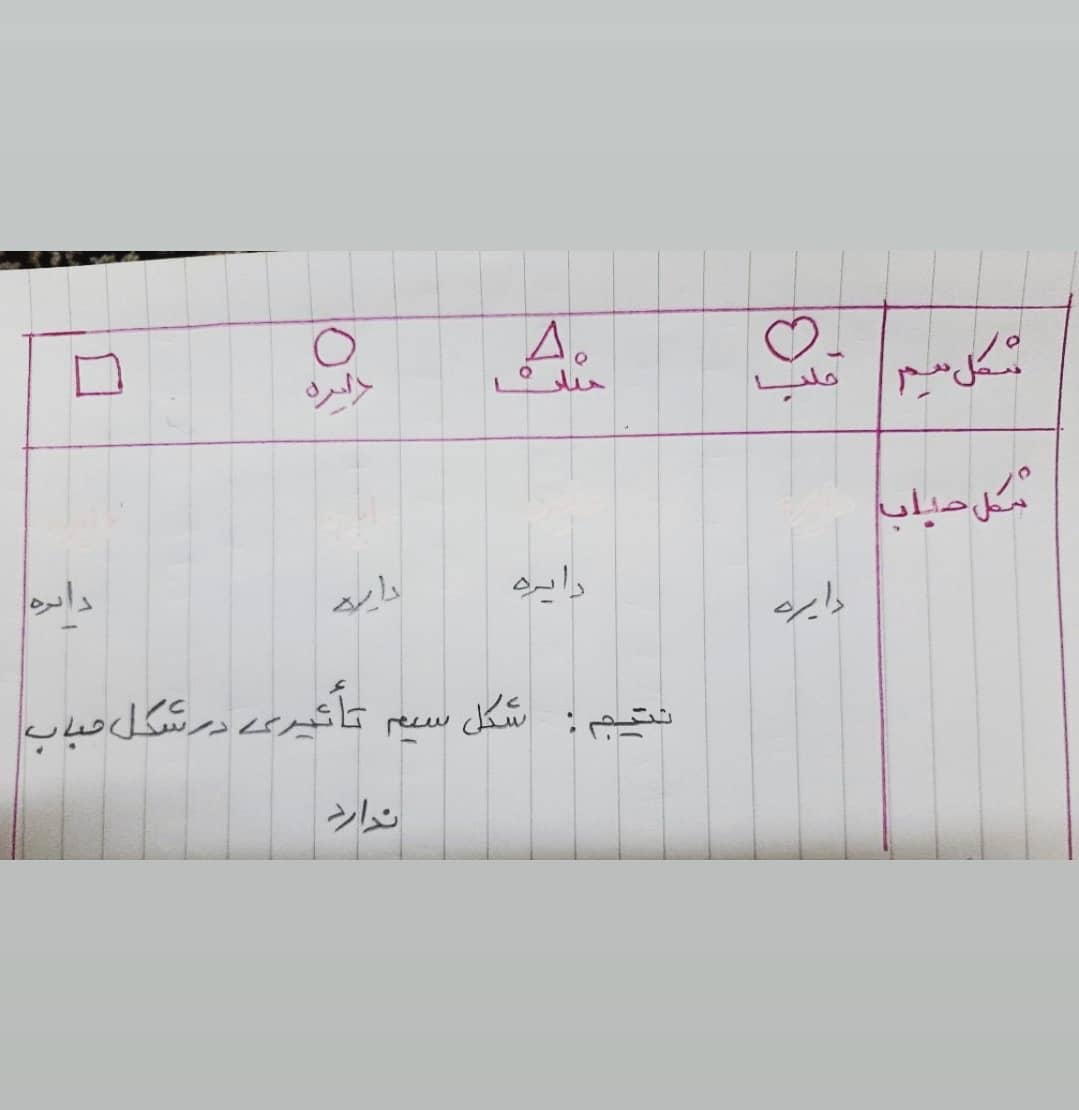 شکل سیم قلب مثلث دایره
شکل حباب
دایره دایره دایره دایره
نتیجه : شکل سیم تأثیری در شکل حباب
ندارد